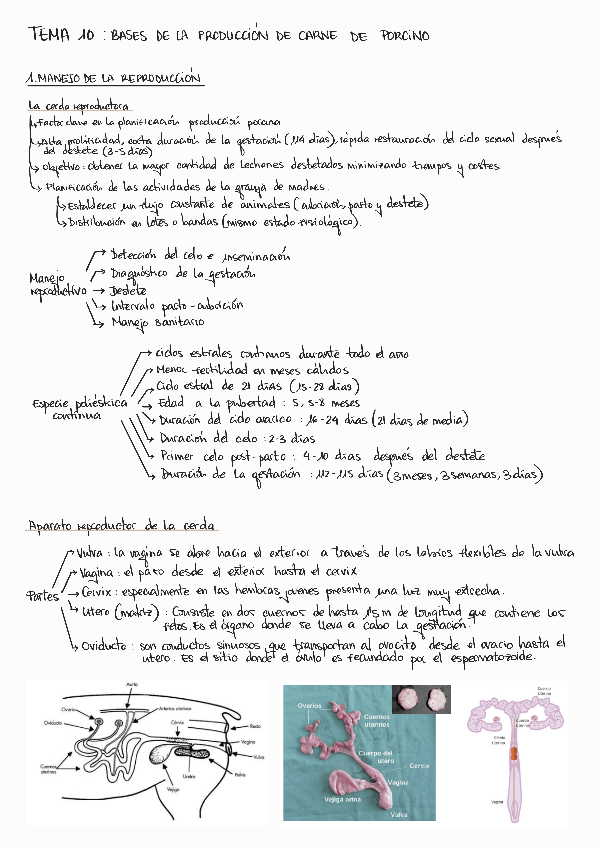 TEMA 10 : BASES DE LA PRODUCCIÓN DE CARNE DE PORCINO
1. MANEJO DE LA REPRODUCCIÓN
La cerda reproductora
↳ Factor clave en la planificación producción porcina
↳ Alta prolificidad, corta duración de la gestación (114 días), rápida restauración del ciclo sexual después
del destete (3-5 días)
↳ Objetivo : obtener la mayor cantidad de lechones destetados minimizando tiempos y costes
↳ Planificación de las actividades de la granja de madres.
↳ Establecer un flujo constante de animales (cubrición, parto y destete)
↳ Distribución en lotes o bandas (mismo estado fisiológico).
Manejo
reproductivo
→ Detección del celo e inseminación
→ Diagnóstico de la gestación
→ Destete
→ Intervalo parto-cubrición
→ Manejo sanitario
Especie poliéstrica
continua
→ Ciclos estrales continuos durante todo el año
→ Menor fertilidad en meses cálidos
→ Ciclo estral de 21 días (15-28 días)
→ Edad a la pubertad : 5, 5-8 meses
→ Duración del ciclo ovárico : 16-24 días (21 días de media)
→ Duración del celo : 2-3 días
→ Primer celo post-parto : 4-10 días después del destete
→ Duración de la gestación : 112-115 días (3 meses, 3 semanas, 3 días)
Aparato reproductor de la cerda
Partes
→ Vulva : la vagina se abre hacia el exterior a través de los labios flexibles de la vulva
→ Vagina : el paso desde el exterior hasta el cervix
→ Cervix : especialmente en las hembras jóvenes presenta una luz muy estrecha.
→ Utero (matriz) : Consiste en dos cuernos de hasta 1,5 m de longitud que contiene los
fetos. Es el órgano donde se lleva a cabo la gestación.
→ Oviducto : son conductos sinuosos que transportan al ovocito desde el ovario hasta el
utero. Es el sitio donde el óvulo es fecundado por el espermatozoide.
Aorta
Ovario
Arterias uterinas
Oviducto
Cérvix
Recto
Vagina
Vulva
Cuernos
uterinos
Uretra
Pelvis
Vejiga
Ovarios
Cuernos
uterinos
Cuerpo del
utero
Cervix
Vagina
Vejiga orina
Vulva
Cuerno
Uterino
Cuerpo
Uterino
Cérvix
Uterina
Vagina